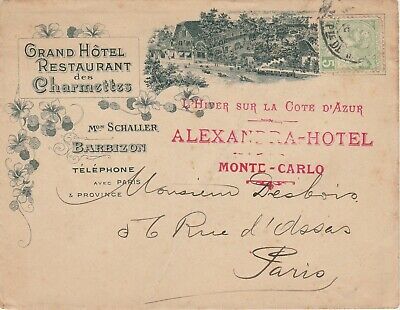 GRAND HÔTEL
RESTAURANT
des
Charmettes
MON SCHALLER
BARBIZON
TÉLÉPHONE
AVEC PARIS
& PROVINCE
5
L'HIVER SUR LA COTE D'AZUR
ALEXANDRA-HOTEL
MONTE-CARLO
Monsieur Desbois
Rue d'Assas
Paris